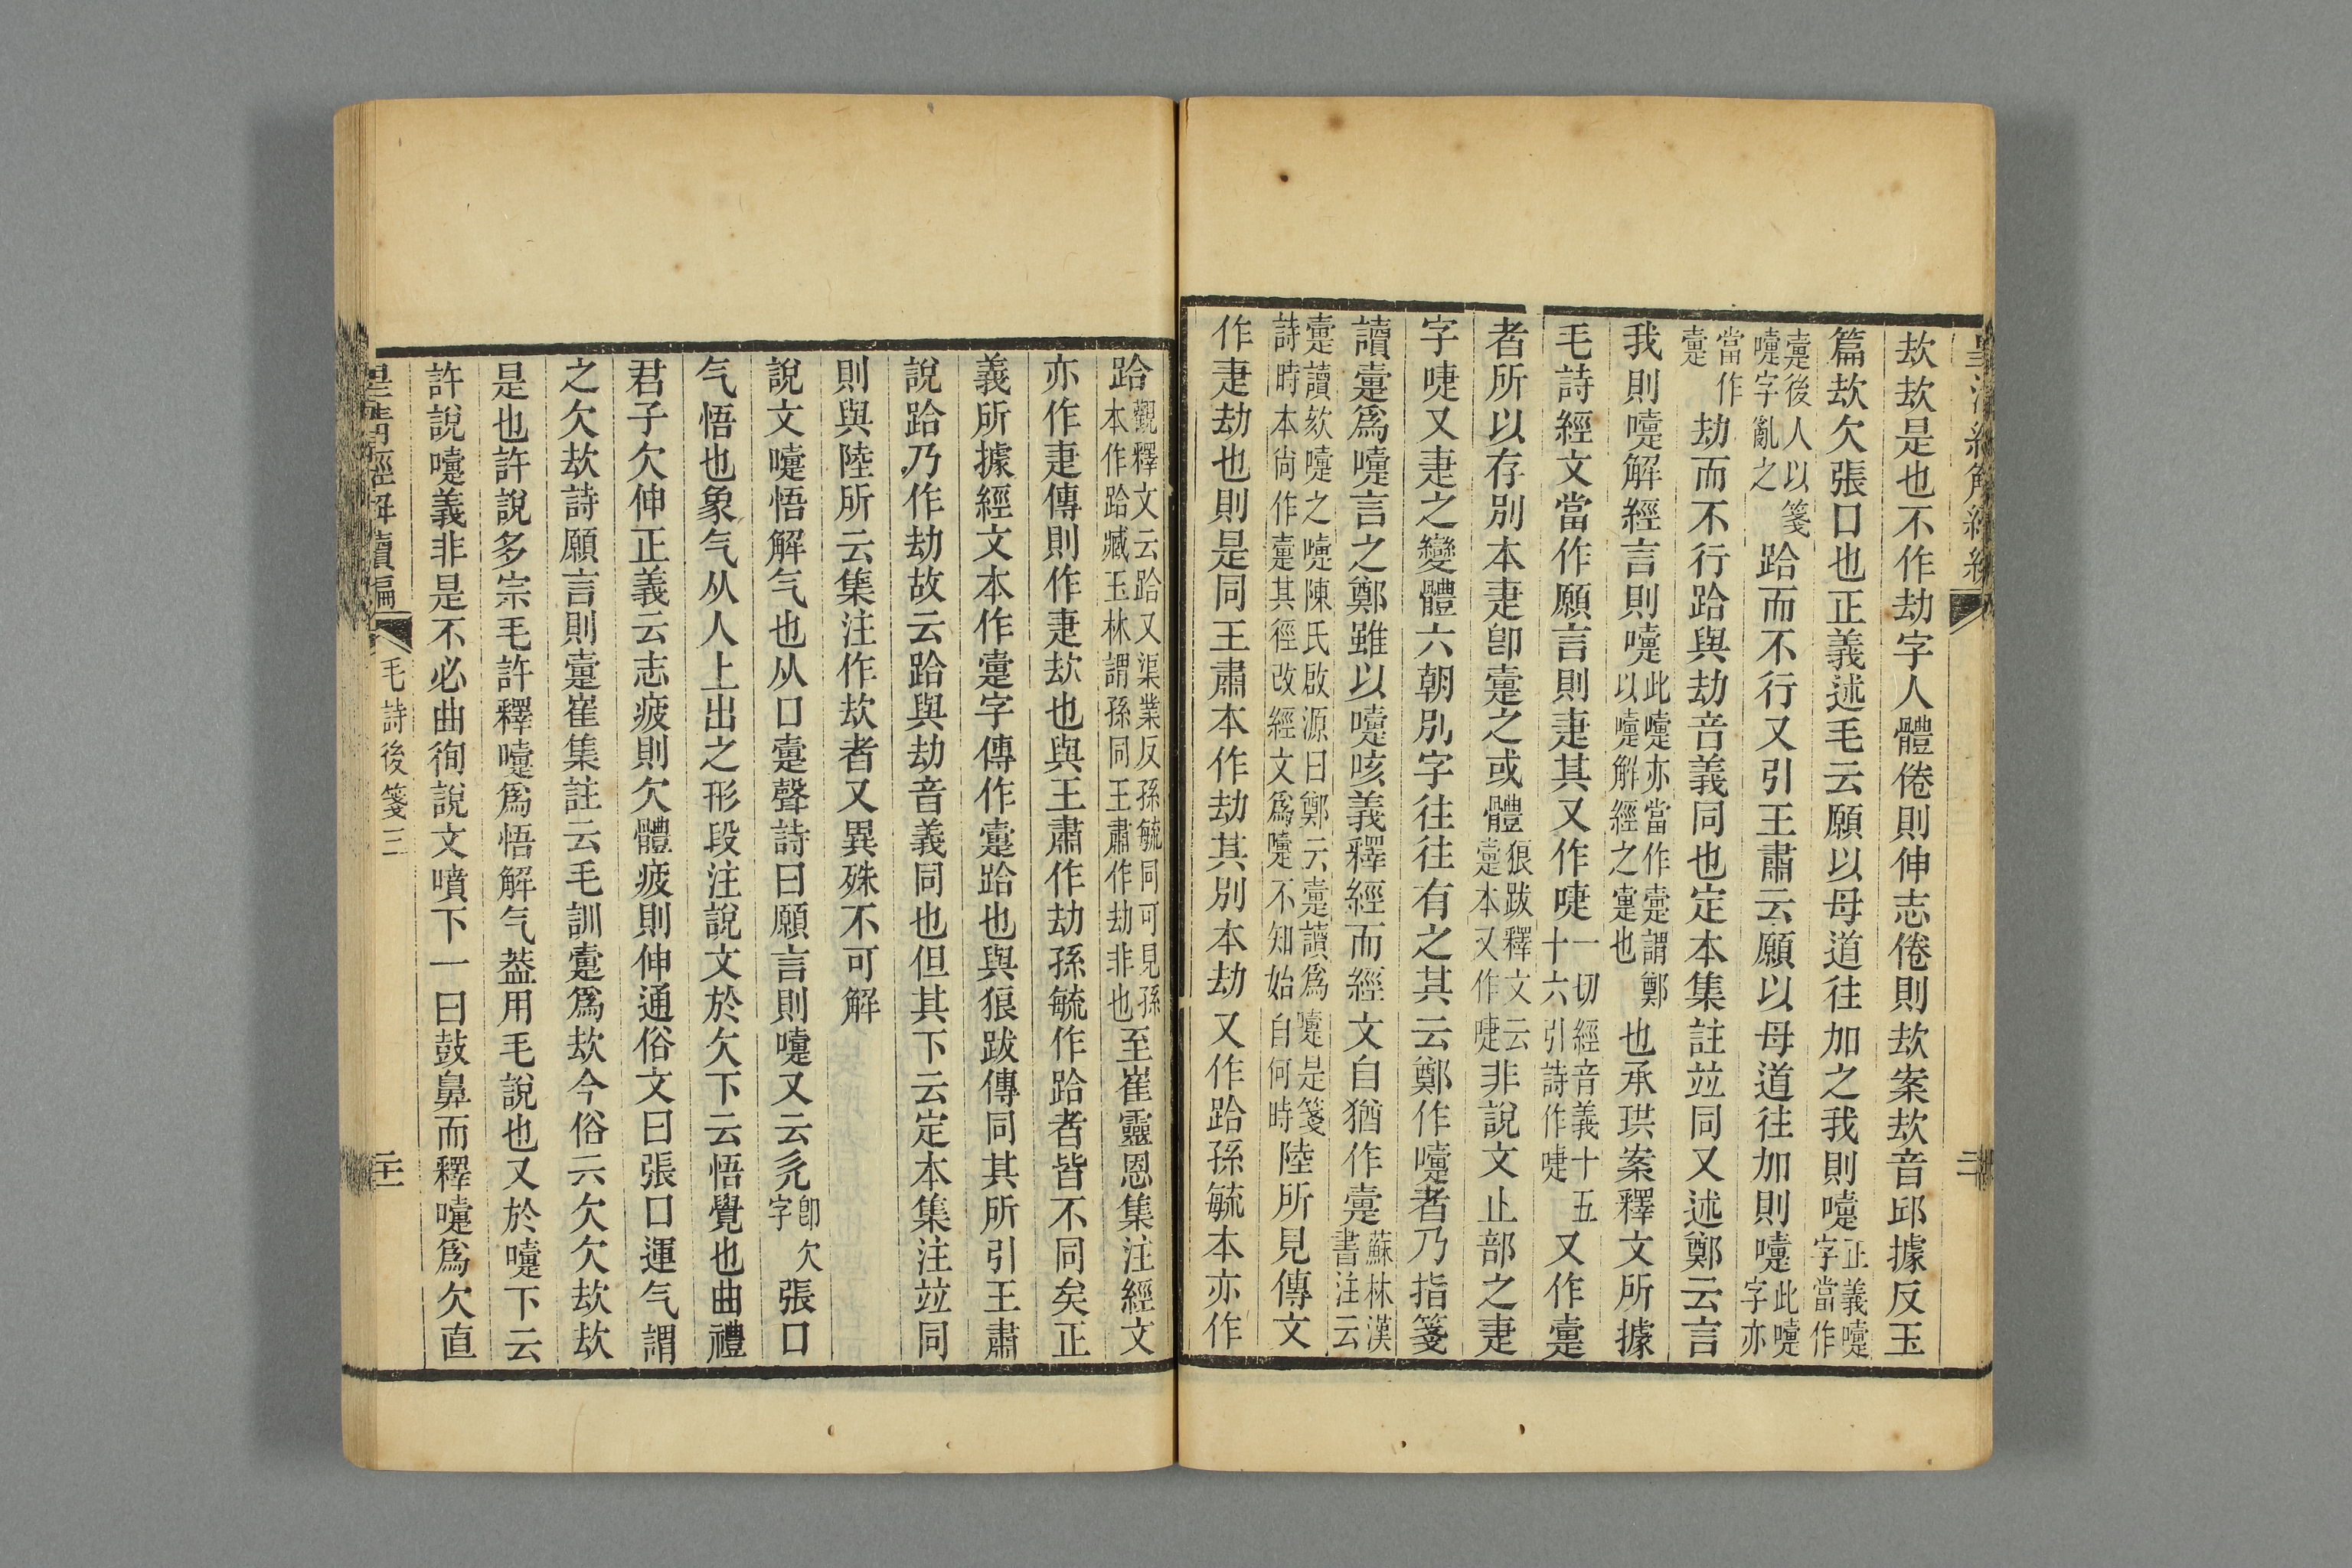 欯欯是也不作劫字人體倦則伸志倦則欯案欯音邱據反玉
篇欯欠張口也正義述毛云願以母道往加之我則嚏正義嚏字當作
疐後人以箋嚏字亂之跲而不行又引王肅云願以母道往加則嚏此嚏字亦
當作疐劫而不行跲與劫音義同也定本集註竝同又述鄭云言
我則嚏解經言則嚏此嚏亦當作疐謂鄭以嚏解經之疐也也承珙案釋文所據
毛詩經文當作願言則疌其又作啑一切經音義十五十六引詩作啑又作疐
者所以存別本疌卽疐之或體狼跋釋文云疐本又作啑非說文止部之疌
字啑又疌之變體六朝別字往往有之其云鄭作嚏者乃指箋
讀疐爲嚏言之鄭雖以嚏咳義釋經而經文自猶作疐蘇林漢書注云
疐讀欬嚏之嚏陳氏啟源曰鄭云疐讀爲嚏是箋詩時本尙作疐其徑改經文爲嚏不知始自何時陸所見傳文
作疌劫也則是同王肅本作劫其別本劫又作跲孫毓本亦作
跲觀釋文云跲又渠業反孫毓同可見孫本作跲臧玉林謂孫同王肅作劫非也至崔靈恩集注經文
亦作疌傳則作疌欯也與王肅作劫孫毓作跲者皆不同矣正
義所據經文本作疐字傳作疐跲也與狼跋傳同其所引王肅
說跲乃作劫故云跲與劫音義同也但其下云定本集注竝同
則與陸所云集注作欯者又異殊不可解
說文嚏悟解气也从口疐聲詩曰願言則嚏又云旡卽欠字張口
气悟也象气从人上出之形段注說文於欠下云悟覺也曲禮
君子欠伸正義云志疲則欠體疲則伸通俗文曰張口運气謂
之欠欯詩願言則疐崔集註云毛訓疐爲欯今俗云欠欠欯欯
是也許說多宗毛許釋嚏爲悟解气葢用毛說也又於嚏下云
許說嚏義非是不必曲徇說文噴下一曰鼓鼻而釋嚏爲欠直
皇清經解續編 毛詩後箋三